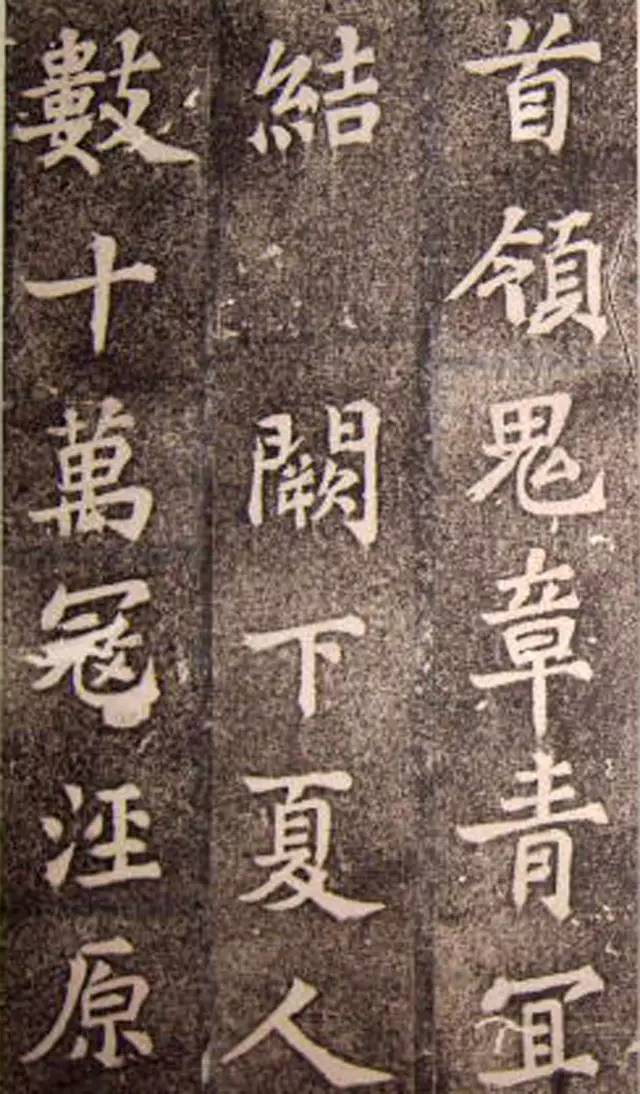 首領鬼章青冝
結　闕下夏人
數十萬冦涇原